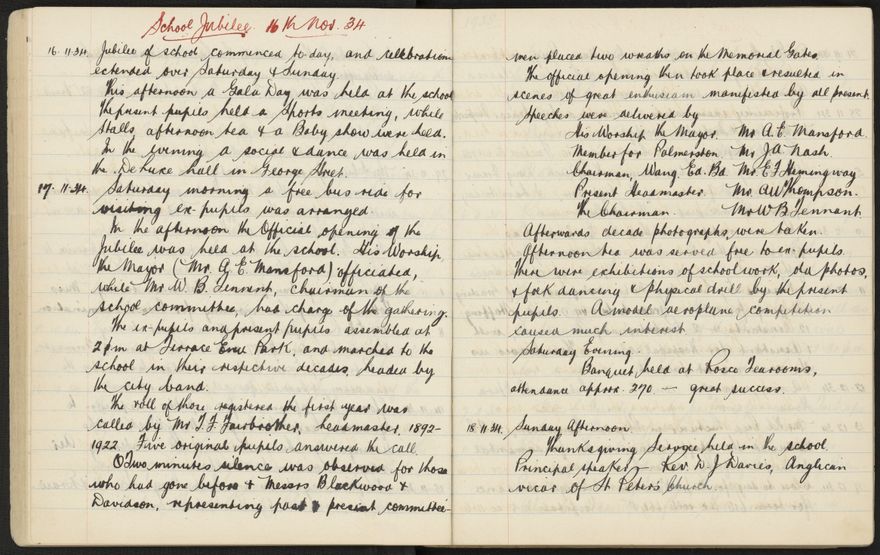 School Jubilee 16th Nov. 34
16.11.34. Jubilee of school commenced to-day, and celebration
extended over Saturday & Sunday
This afternoon a Gala Day was held at the school
The present pupils held a Sports meeting, while
stalls, afternoon tea & a Baby show were held.
In the evening a social & dance was held in
the De Luxe hall in George Street.
17.11.34. Saturday morning a free bus ride for
visiting ex-pupils was arranged
In the afternoon the Official opening of the
Jubilee was held at the school. His Worship
the Mayor (Mr. A. E. Mansford) officiated,
while Mr W. B. Tennent, chairman of the
school committee, had charge of the gathering.
The ex-pupils and present pupils assembled at
2 pm at Terrace End Park, and marched to the
school in their respective decades, headed by
the city band.
The roll of those registered the first year was
called by Mr J. F. Fairbrother, headmaster, 1892-
1922. Five original pupils answered the call.
Two minutes silence was observed for those
who had gone before & Messrs Blackwood &
Davidson, representing past & present committee-
men placed two wreaths on the Memorial Gates.
The official opening then took place & resulted in
scenes of great enthusiasm manifested by all present.
Speeches were delivered by
His Worship the Mayor. Mr A. E. Mansford.
Member for Palmerston. Mr J A Nash.
Chairman, Wang. Ed. Bd. Mr. E F Hemingway
Present Headmaster. Mr. A W Thompson.
The Chairman. Mr W B Tennant.
Afterwards decade photographs were taken.
Afternoon tea was served free to ex-pupils.
There were exhibitions of school work, old photos,
& folk dancing & physical drill by the present
pupils. A model aeroplane competition
caused much interest
Saturday Evening.
Banquet held at Rosco Tearooms,
attendance approx. 270 — great success.
18.11.34. Sunday Afternoon
Thanksgiving Service held in the school.
Principal speaker – Rev. D J Davies, Anglican
vicar of St Peter's Church.